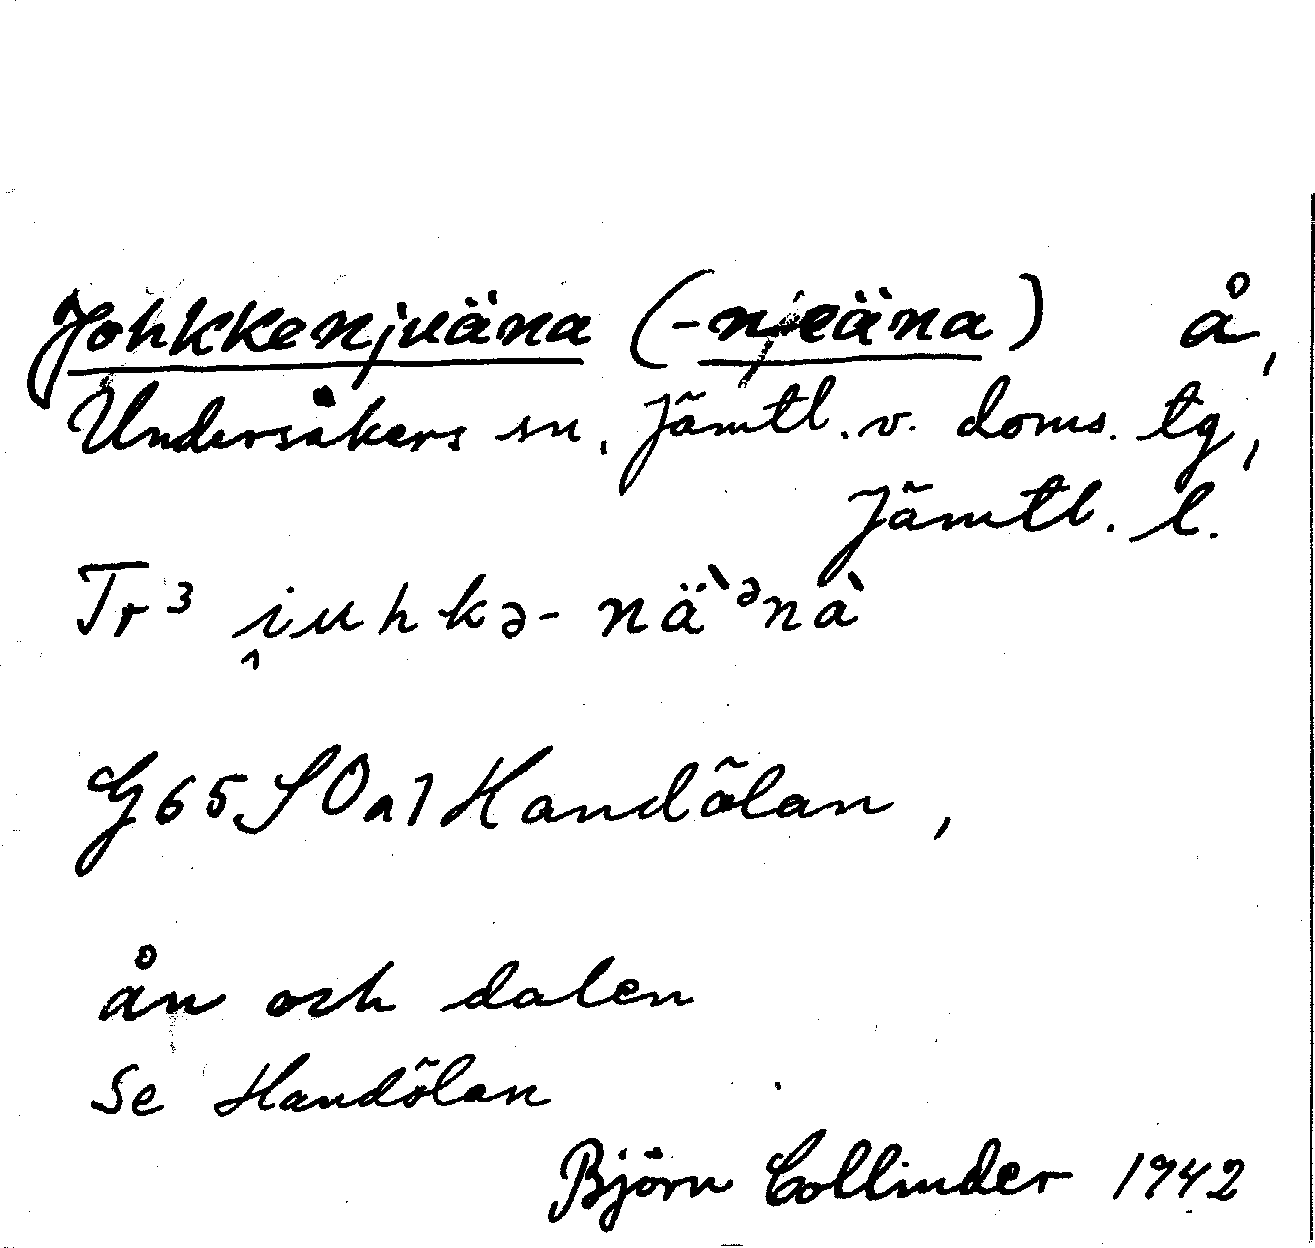 Johkkenjuäna (-njeäna) å,
Undersåkers sn, Jämtl. v. doms. tg,
Jämtl. l.
Tr³ i̯uhkə-nä̀ᵊnà
G65SOa1 Handölan,
ån och dalen
Se Handölan
Björn Collinder 1942